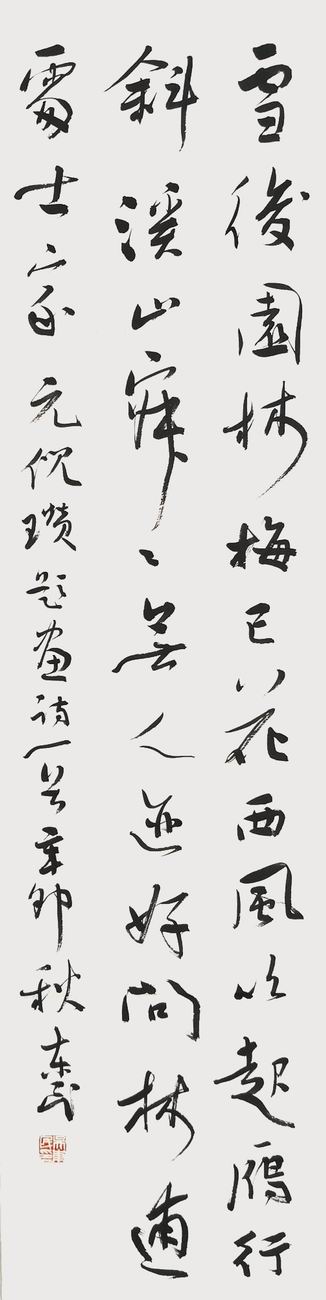 雪後園林梅已花西風吹起鴈行
斜溪山寂〻無人迹好問林逋
處士家元倪瓚題畫詩一首辛卯秋